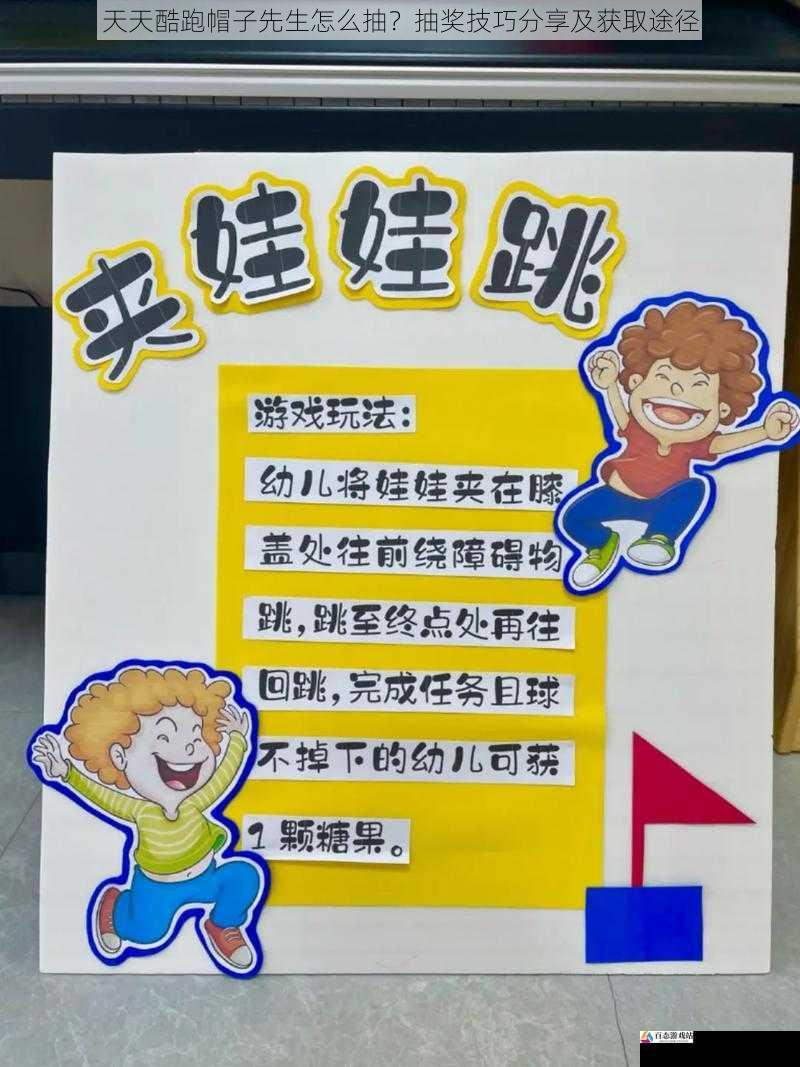 天天酷跑帽子先生怎么抽？抽奖技巧分享及获取途径
夹娃娃跳
游戏玩法：
幼儿将娃娃夹在膝
盖处往前绕障碍物
跳，跳至终点处再往
回跳，完成任务且球
不掉下的幼儿可获
1颗糖果。
百态游戏站